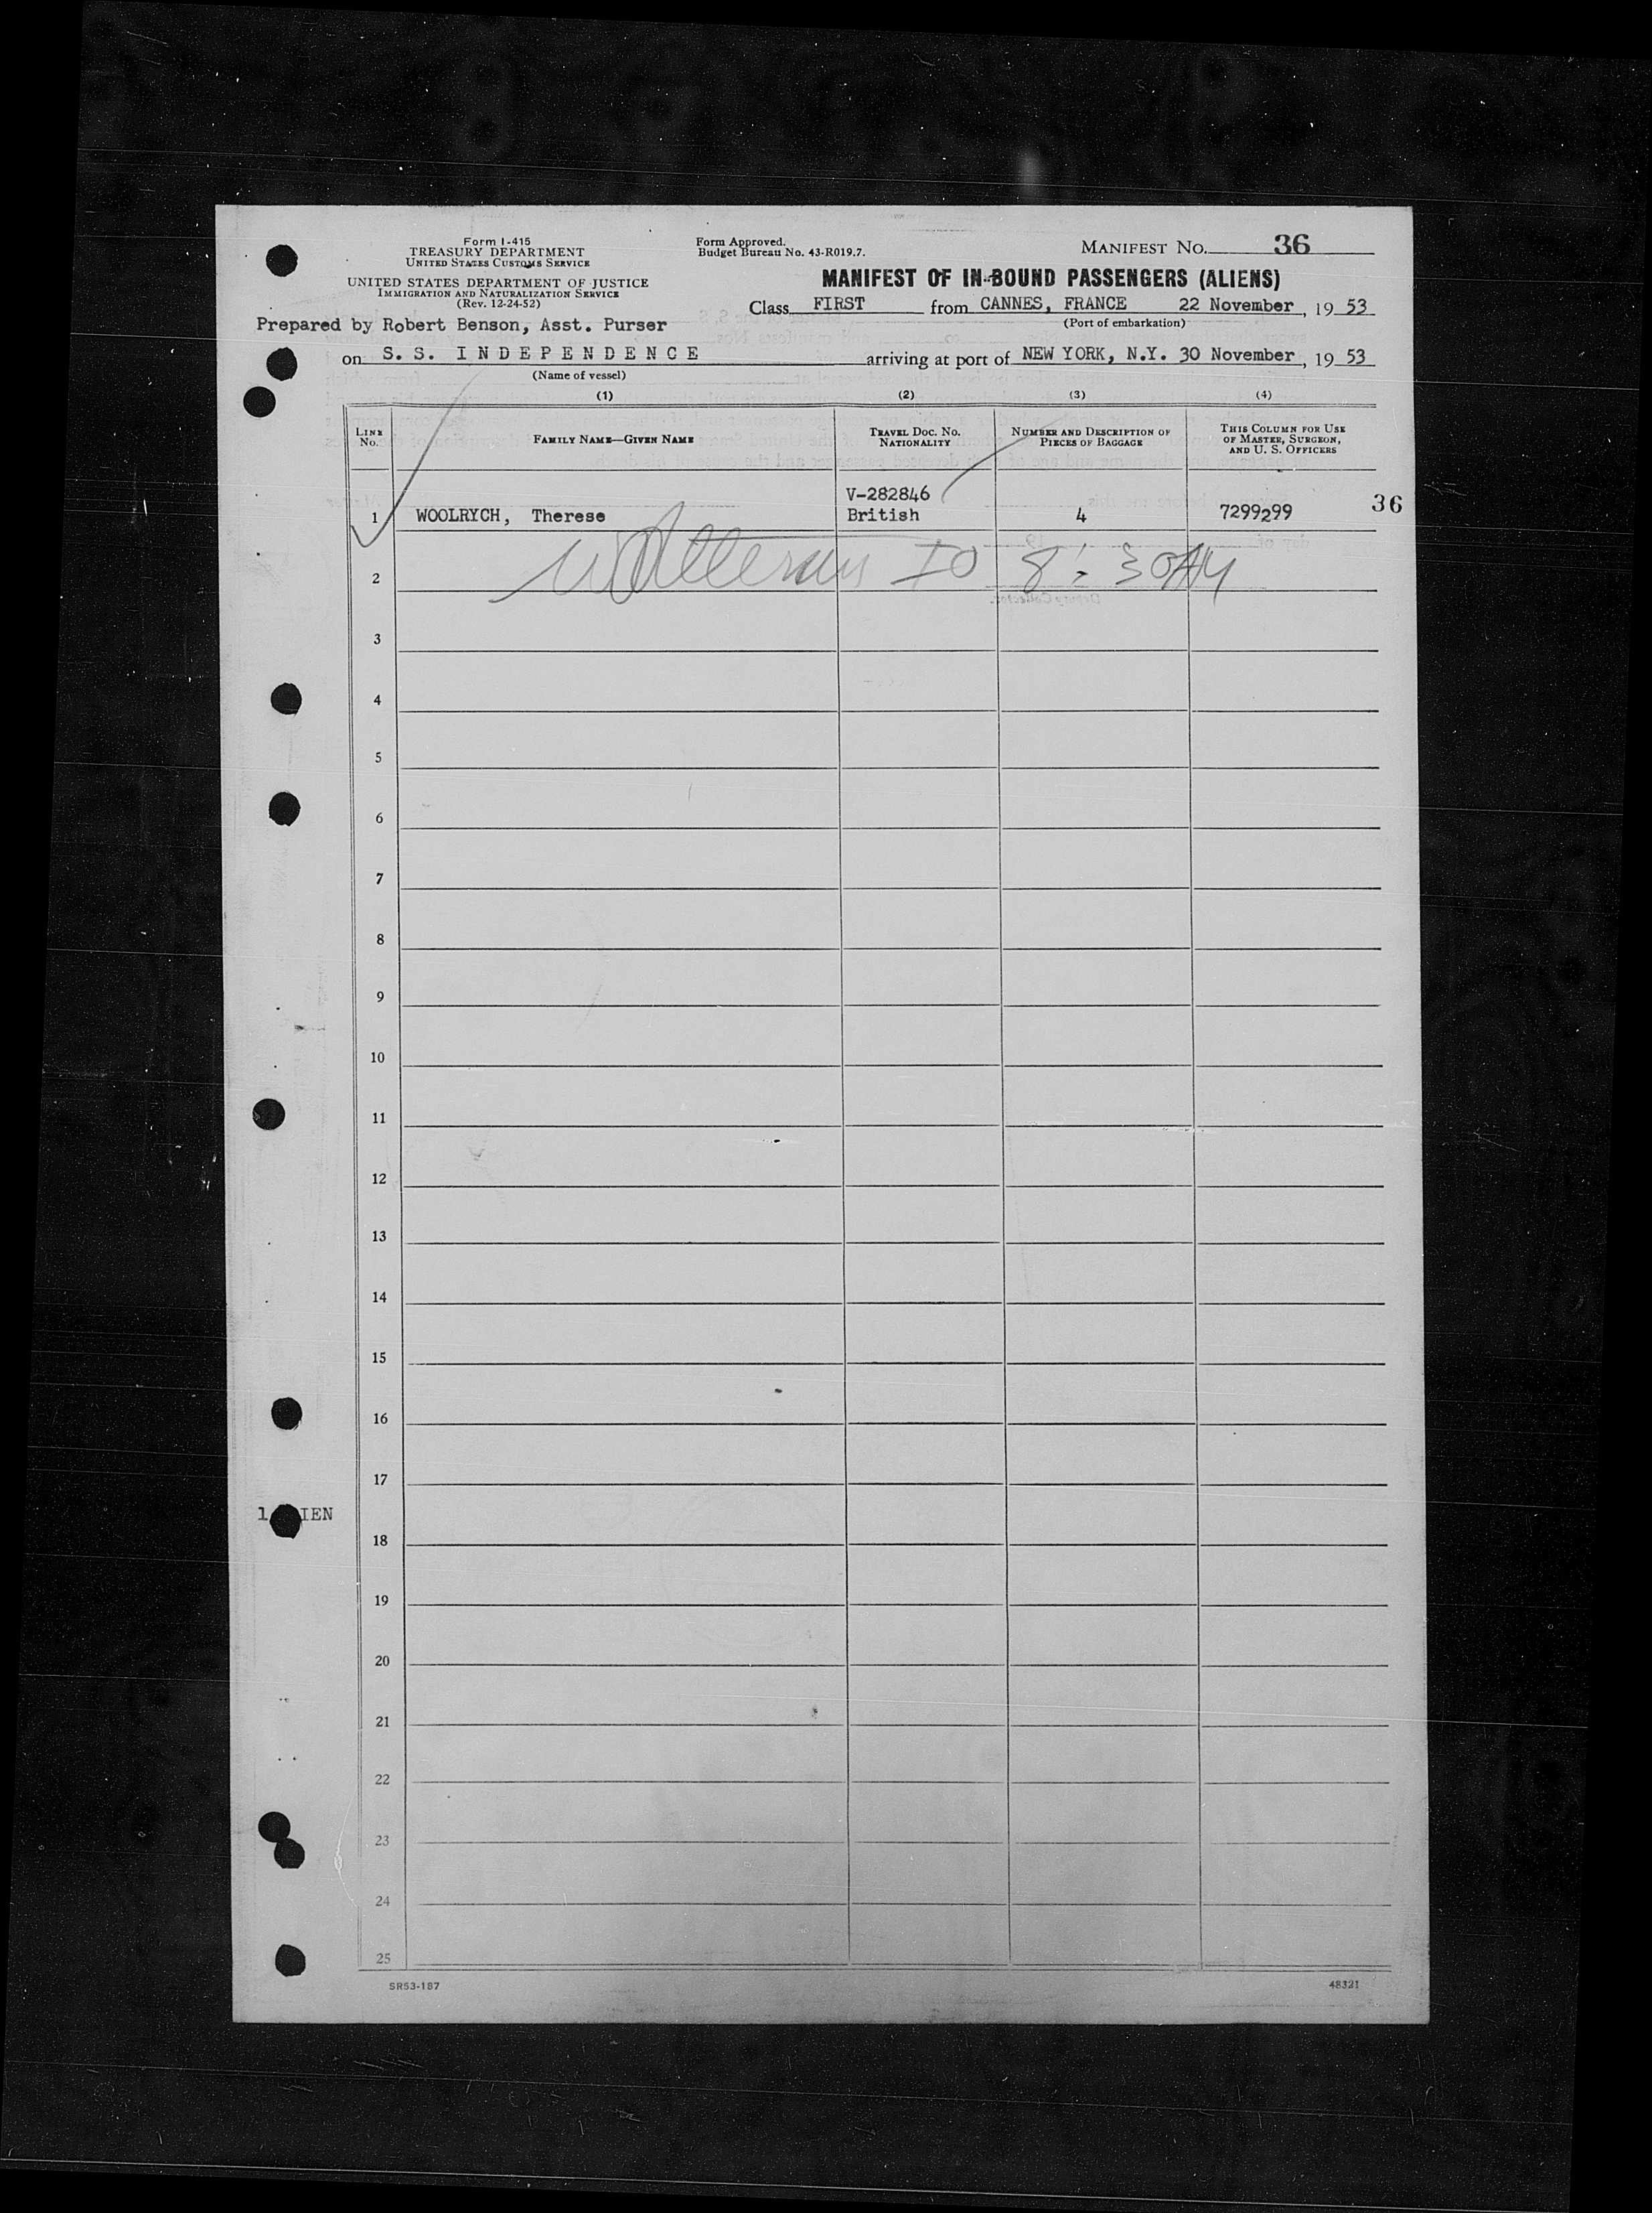 Form I-415
TREASURY DEPARTMENT
UNITED STATES CUSTOMS SERVICE
UNITED STATES DEPARTMENT OF JUSTICE
IMMIGRATION AND NATURALIZATION SERVICE
(Rev. 12-24-52)
Form Approved.
Budget Bureau No. 43-R019.7.
MANIFEST NO. 36
MANIFEST OF IN-BOUND PASSENGERS (ALIENS)
Class FIRST from CANNES, FRANCE 22 November, 19 53
(Port of embarkation)
Prepared by Robert Benson, Asst. Purser
on S. S. INDEPENDENCE arriving at port of NEW YORK, N.Y. 30 November, 19 53
(Name of vessel)
(1) (2) (3) (4)
LINE No. FAMILY NAME—GIVEN NAME TRAVEL DOC. NO. NATIONALITY NUMBER AND DESCRIPTION OF PIECES OF BAGGAGE THIS COLUMN FOR USE OF MASTER, SURGEON, AND U. S. OFFICERS
V-282846
1 WOOLRYCH, Therese British 4 7299299 36
2 IO 8:30AM
3
4
5
6
7
8
9
10
11
12
13
14
15
16
17
1 IEN
18
19
20
21
22
23
24
25
SR53-187 48321